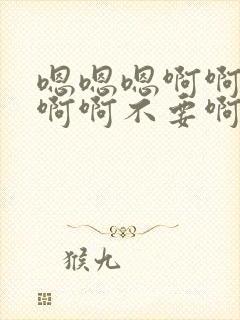 嗯嗯嗯啊啊
啊啊不要啊
猴九